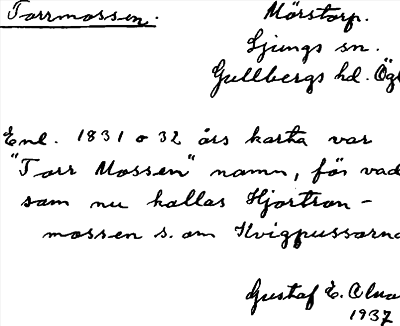 Torrmossen. Mörstorp.
Ljungs sn.
Gullbergs hd. Ög
Enl. 1831 o 32 års karta var
"Torr Mossen" namn, för vad
som nu kallas Hjortron-
mossen s. om Kvigpussarna
Gustaf E.
1937